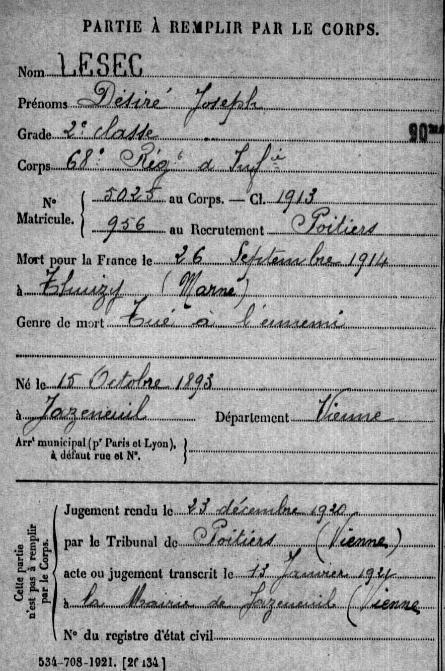 PARTIE À REMPLIR PAR LE CORPS.
Nom LESEC
Prénoms Désiré Joseph
Grade 2e classe
90
Corps 68e Régt d'Infie
No Matricule. 5025 au Corps. — Cl. 1913
956 au Recrutement Poitiers
Mort pour la France le 26 Septembre 1914
à Thuizy (Marne)
Genre de mort Tué à l'ennemi
Né le 15 Octobre 1893
à Jazeneuil Département Vienne
Arrt municipal (pr Paris et Lyon),
à défaut rue et No.
Cette partie
n'est pas à remplir
par le Corps.
Jugement rendu le 23 décembre 1920
par le Tribunal de Poitiers (Vienne)
acte ou jugement transcrit le 13 Janvier 1921
à la Mairie de Jazeneuil (Vienne
No du registre d'état civil
534-708-1921. [26434]